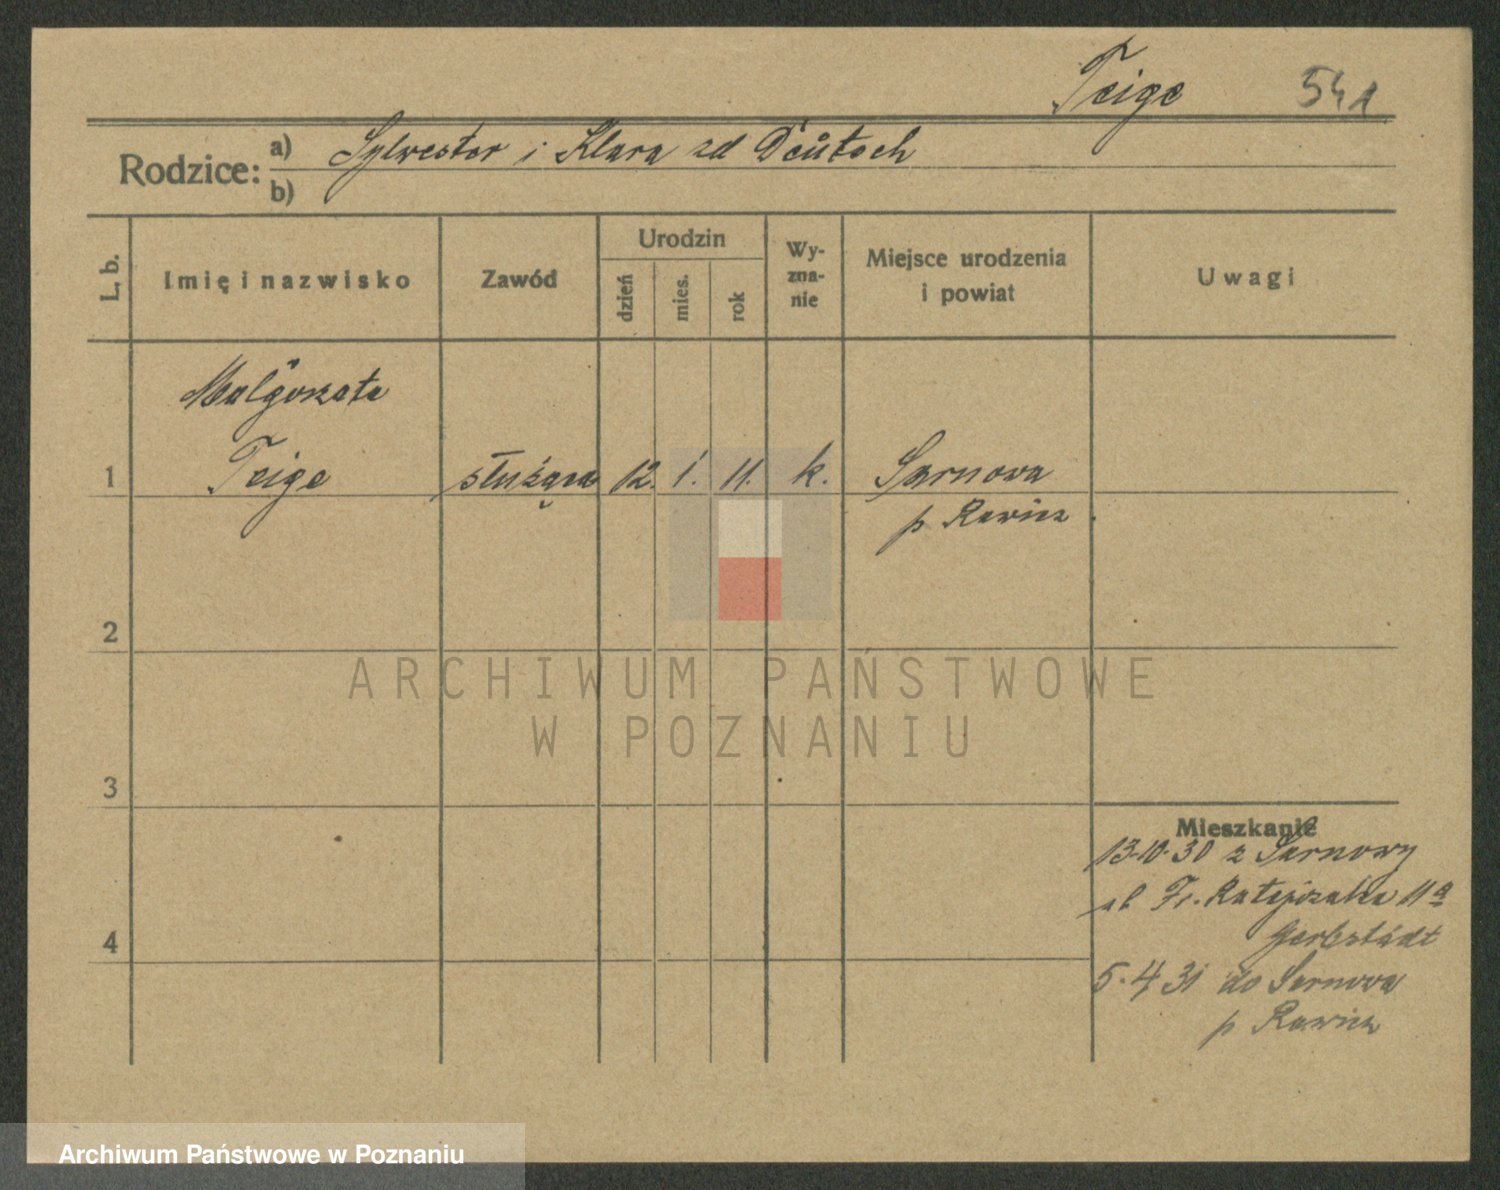 Teige 541
Rodzice: a) Sylwester i Klara zd Deutsch
b)
L. b. Imię i nazwisko Zawód Urodzin dzień mies. rok Wyznanie Miejsce urodzenia i powiat Uwagi
Małgorzata
1 Teige służąca 12. 1. 11. k. Sarnowa
p Rawicz
2
ARCHIWUM PAŃSTWOWE
W POZNANIU
3
Mieszkanie
13-10-30 z Sarnowy
ul Fr. Ratajczaka 11a
4 Gerbstädt
5.4 31 do Sarnowa
p Rawicz
Archiwum Państwowe w Poznaniu